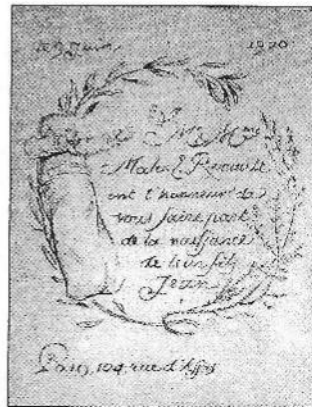 le 9 Juin 1920
Mr & Mme
Malo E. Renault
ont l'honneur de
vous faire part
de la naissance
de leur fils
Jean
Paris, 124, rue d'Assas